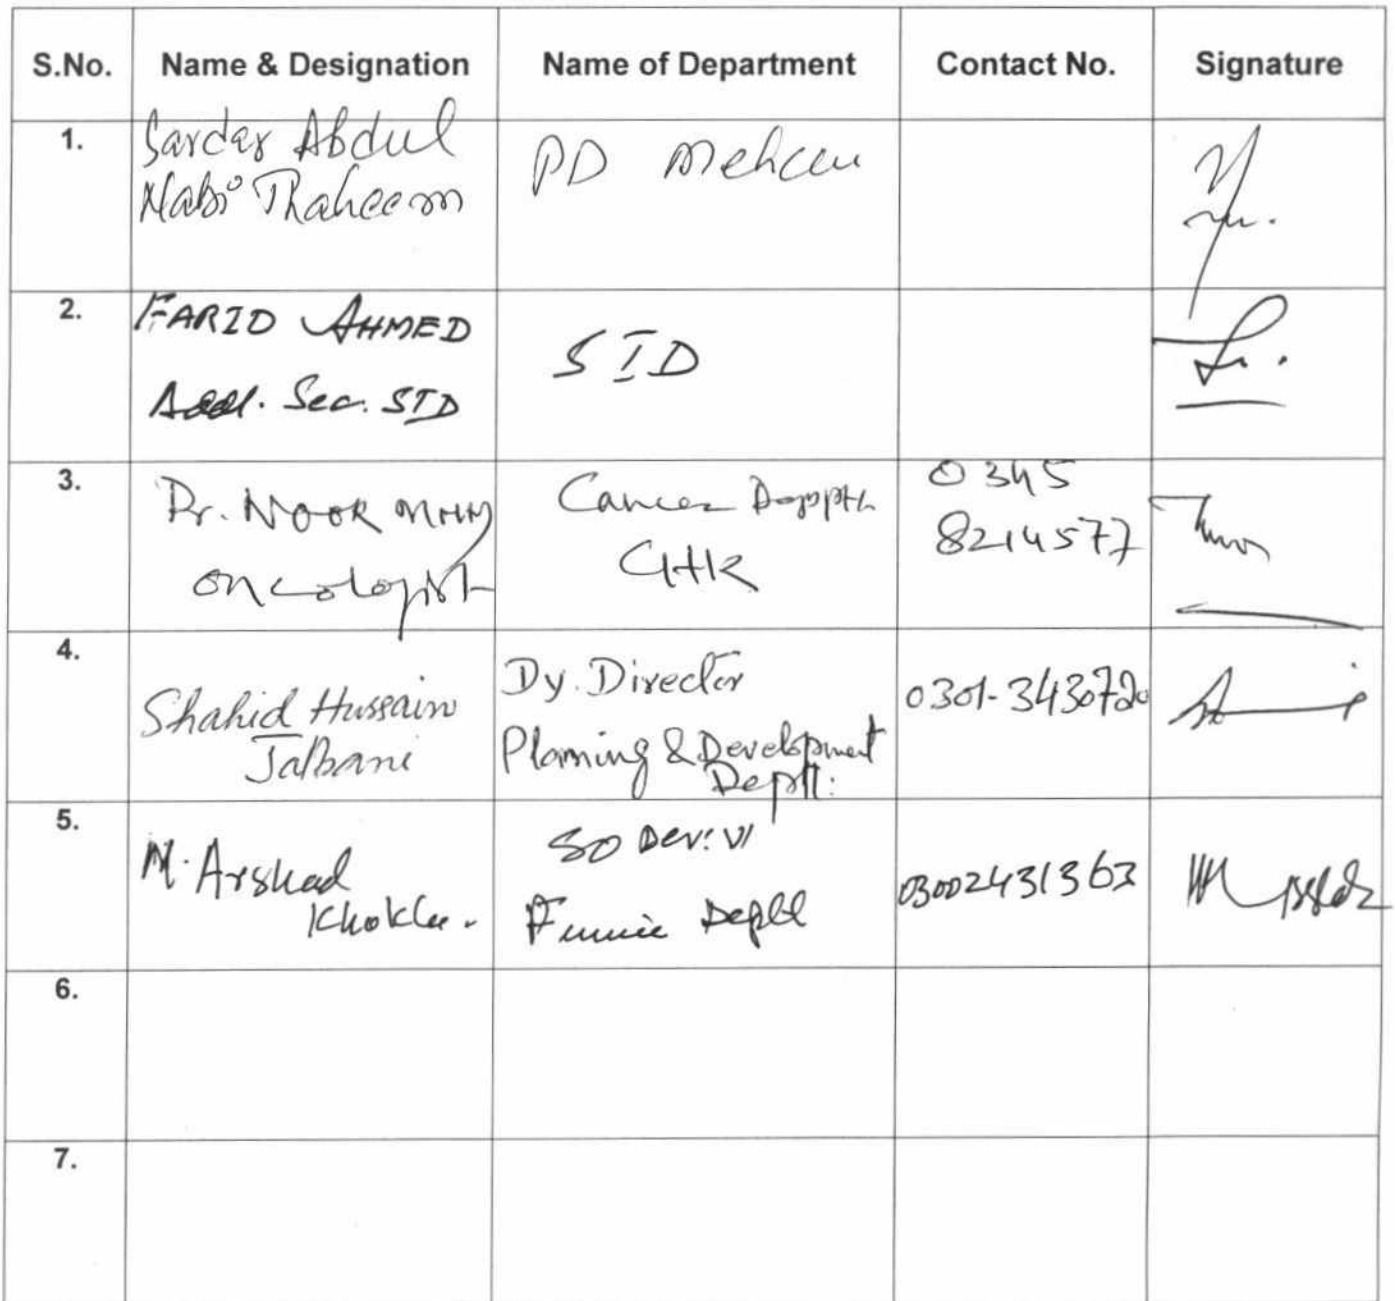 S.No. Name & Designation Name of Department Contact No. Signature
1. Sardar Abdul
Nabi Thaheem
PD Mehcon
2. FARID AHMED
Addl. Sec. SID
SID
3. Dr. NOOR
Oncologist
Cancer
GHK
0345
8214577
4. Shahid Hussain
Jalbani
Dy. Director
Planning & Development
Deptt:
0301-3430720
5. M. Arshad
SO Dev: VI
Deptt
03002431363
6.
7.